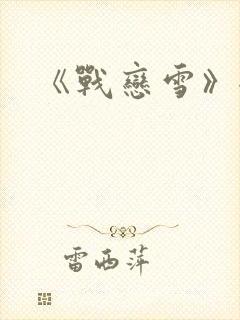 《戰戀雪》
雷西萍